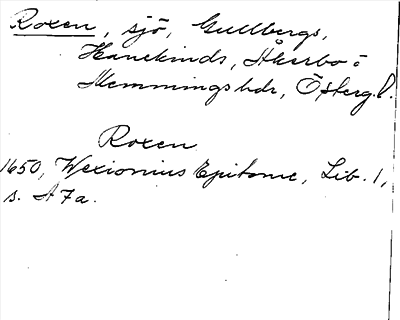 Roxen, sjö, Gullbergs,
Hanekinds, Åkerbo o
Memmings hdr, Östergl.
Roxen
1650, Wexionius Epitome, Lib. 1,
s. A 7a.